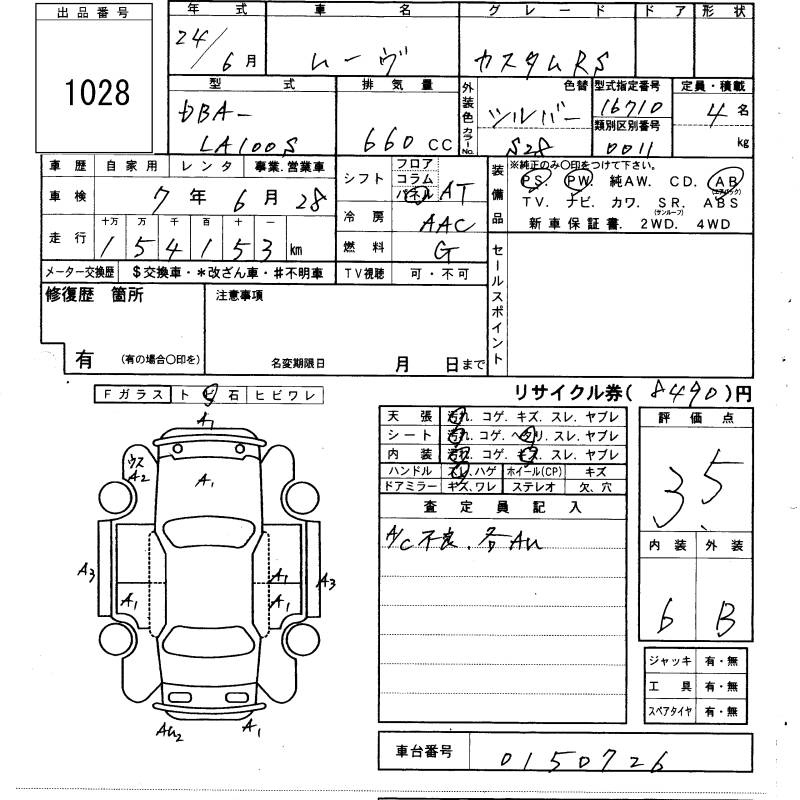 出品番号
1028
年式 車名 グレード ドア 形状
24/6月 ムーヴ カスタムRS
型式 排気量 外装色 カラーNo. 色替 型式指定番号 定員・積載
DBA-LA100S 660 CC シルバー S28 16710 4名
類別区別番号 0011 kg
車歴 自家用 レンタ 事業.営業車
車検 7年 6月 28
走行 十万 万 千 百 十 一
1 5 4 1 5 3 km
メーター交換歴 $交換車・*改ざん車・#不明車
シフト フロア コラム パネル AT
冷房 AAC
燃料 G
TV視聴 可・不可
装備品 ※純正のみ〇印をつけて下さい。
PS. PW. 純AW. CD. AB(エアバック)
TV. ナビ. カワ. SR.(サンルーフ) ABS
新車保証書. 2WD. 4WD
セールスポイント
修復歴 箇所
有 (有の場合〇印を)
注意事項
名変期限日 月 日まで
Fガラス トビ石 ヒビワレ
リサイクル券( 8490 )円
A1
ウス A2
A1
A3 A1 A3
A1 A1
AU2 A1
天張 汚れ. コゲ. キズ. スレ. ヤブレ
シート 汚れ. コゲ. ヘタリ. スレ. ヤブレ
内装 汚れ. コゲ. キズ. スレ. ヤブレ
ハンドル スレ.ハゲ ホイール(CP) キズ
ドアミラー キズ.ワレ ステレオ 欠、穴
査定員記入
A/C不良. 各AU
評価点
3.5
内装 外装
6 B
ジャッキ 有・無
工具 有・無
スペアタイヤ 有・無
車台番号 0150726